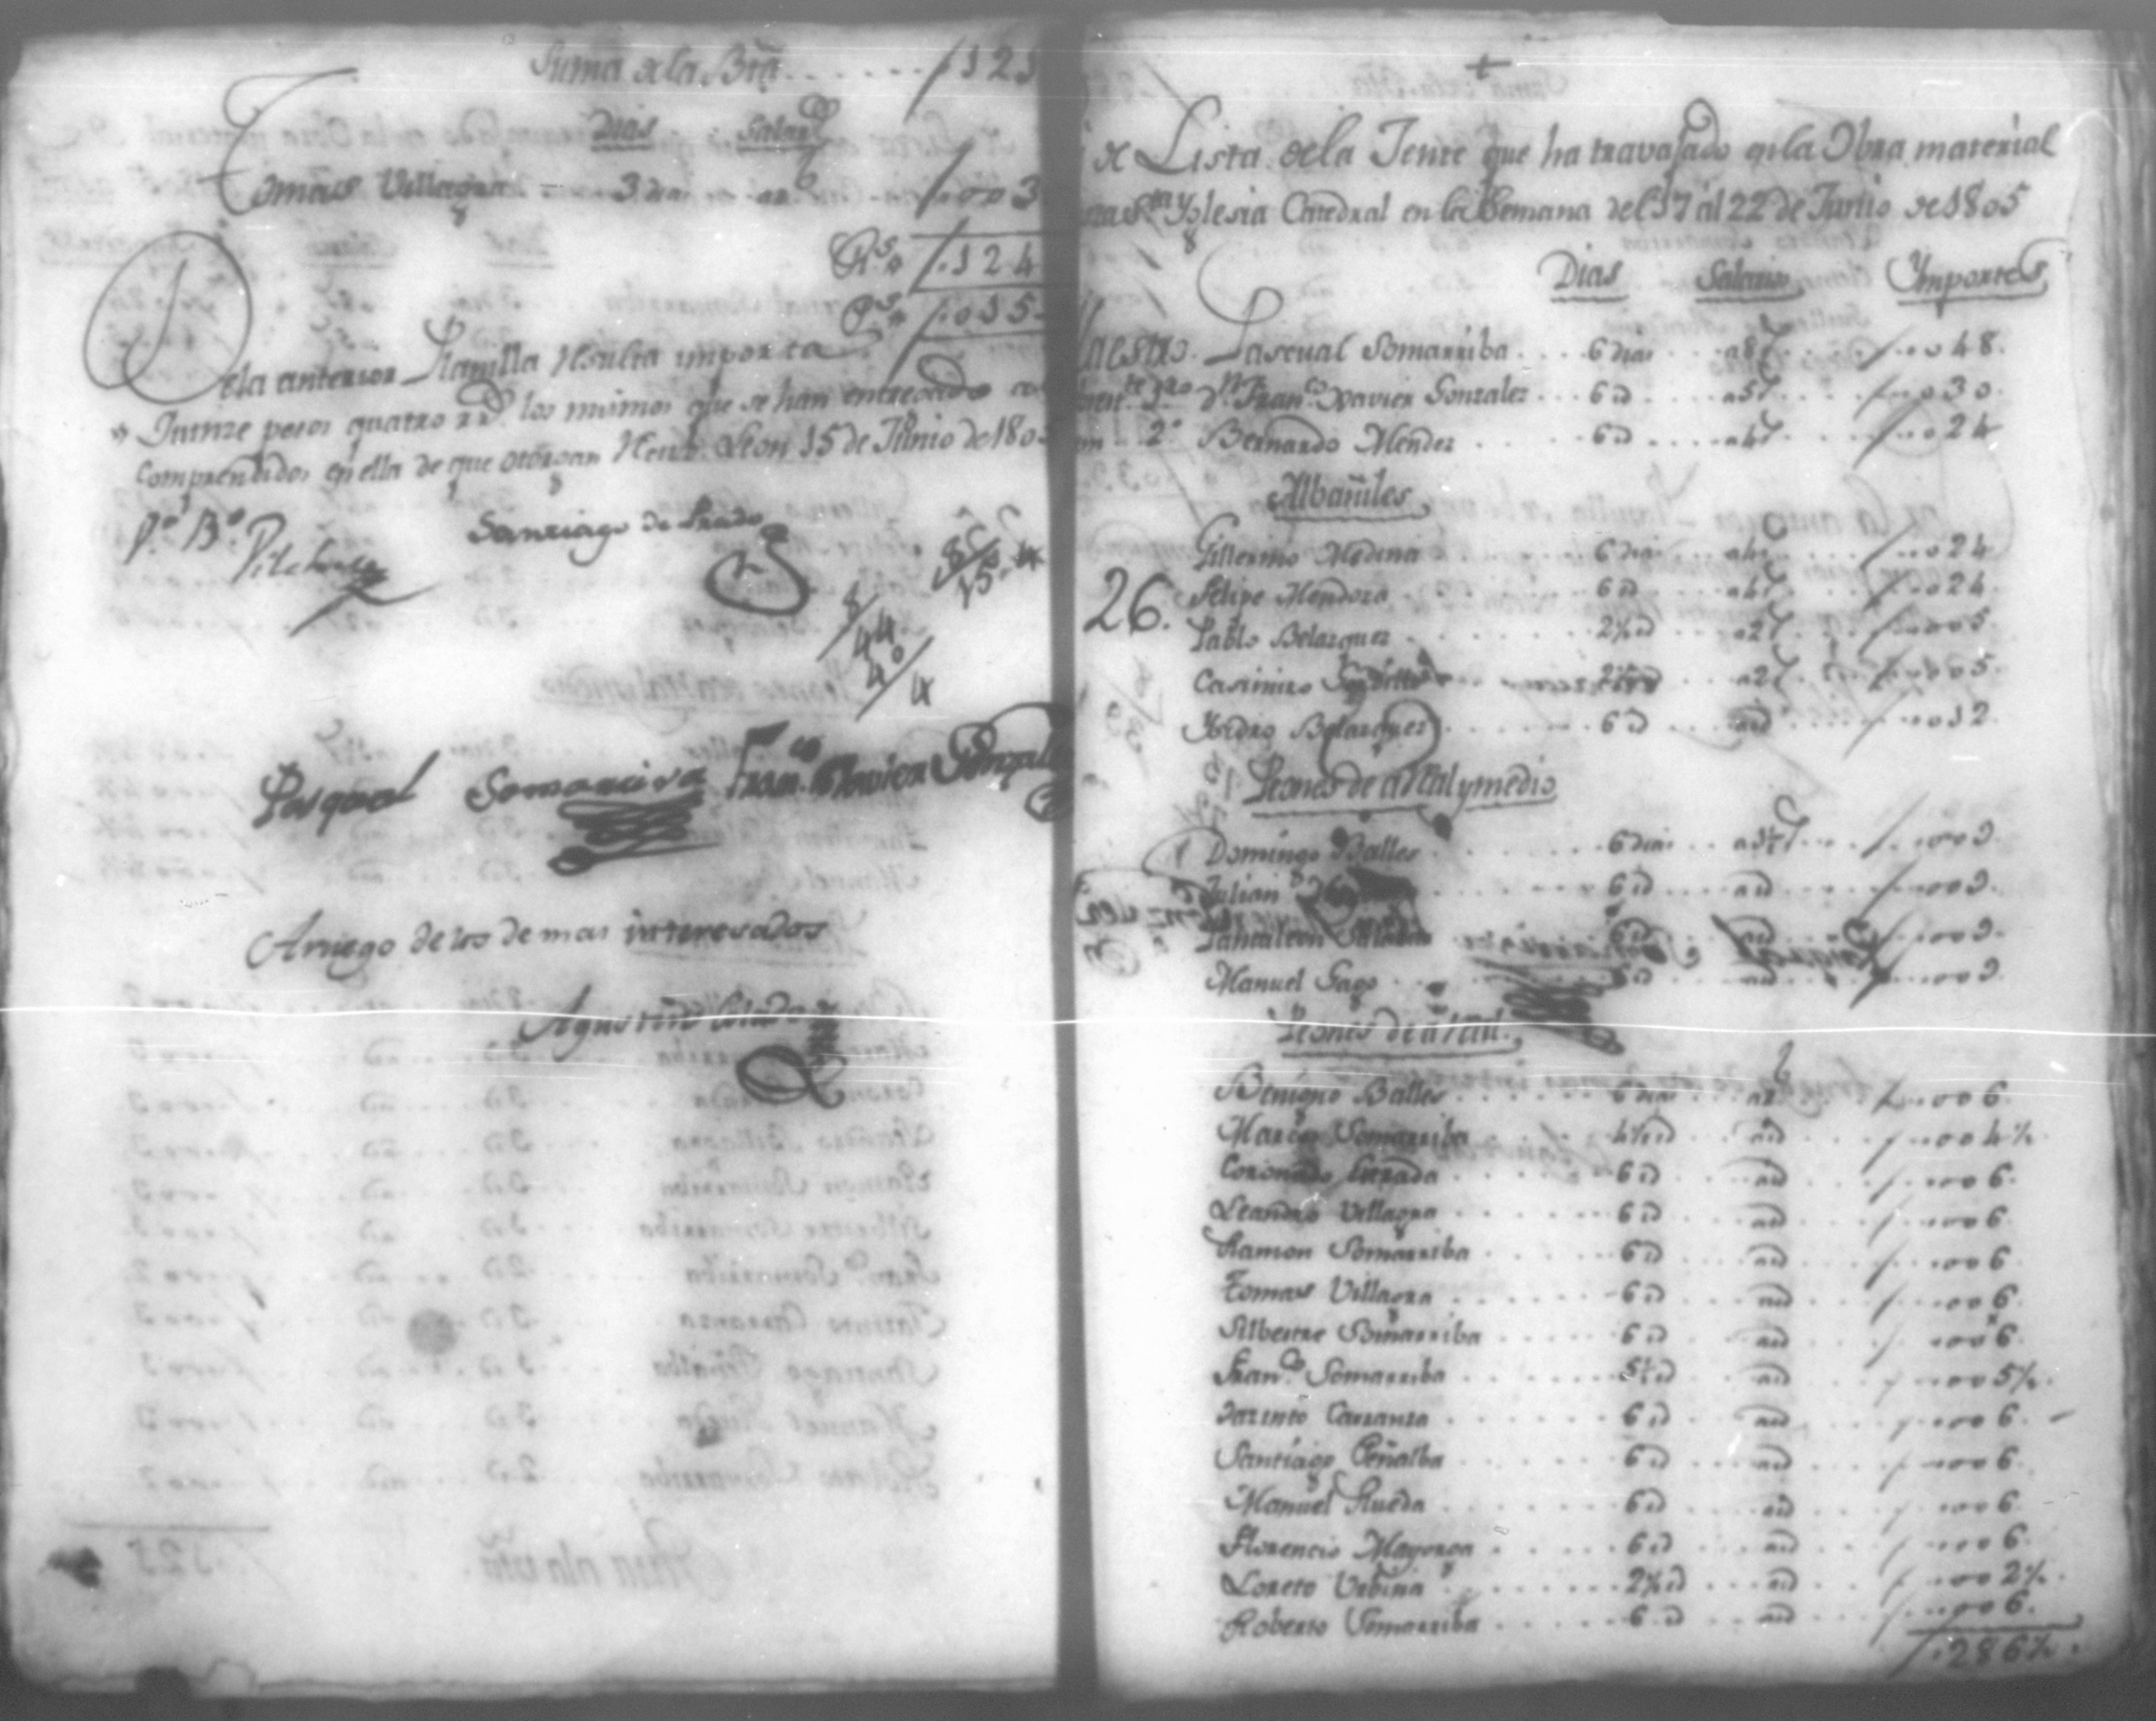 Suma de la Bta ....... /121
Dias Salario
Tomas Villagra = 3 dias ad /..003
Rs. /.124
Ps. /.015
De la anterior Planilla resulta importa
Quinze pesos quatro rrs. los mismos que se han entregado a
comprendidos en ella de que otorgan Recivo. Leon 15 de Junio de 180
Vo. Bo. Santiago de Prado
8 44 40 4
8 15 4
Pasqual Somarriva Franco. Xavier Gonzal
A ruego de los demas interesados
Agustin
+
Lista de la Jente que ha travajado en la Obra material de
Sta Yglesia Catedral en la Semana del 17 al 22 de Junio de 1805
Dias Salario Importes
Maestro. Pascual Somarriba .... 6 dias .. a 8 r /...048.
1ro Dn. Franco. Xavier Gonzalez ... 6 d .... a 5 r /...030.
2o Bernardo Mendez .... 6 d .... a 4 r /...024
Albañiles
Gillermo Medina .... 6 dias .. a 4 r /...024
26. Felipe Mendoza .... 6 d .... a 4 r /...024.
Pablo Belazquez .... 2½ d ... a 2 r /...005
Casimiro .... a 2 r /...005.
Ysidro Belazquez .... 6 d .... ad /...012.
Peones de a real y medio
Domingo Balles .... 6 dias .. a 1½ r /...009.
Julian .... 6 d .... ad /...009.
Pantaleon .... ad /...009.
Manuel Gago .... 6 d .... ad /...009
Peones de a real.
Benigno Balles .... 6 dias .. a 1 /...006.
Marcos Somarriba .... 4½ d .. ad /...004½.
Coronado .... 6 d .. ad /...006.
Leandro Villagra .... 6 d .. ad /...006.
Ramon Somarriba .... 6 d .. ad /...006.
Tomas Villagra .... 6 d .. ad /...006.
Silbestre Somarriba .... 6 d .. ad /...006.
Franco. Somarriba .... 5½ d .. ad /...005½.
Jazinto Carranza .... 6 d .. ad /...006.
Santiago Peñalba .... 6 d .. ad /...006.
Manuel Rueda .... 6 d .. ad /...006.
Florencio Mayorga .... 6 d .. ad /...006.
Loreto Urbina .... 2½ d .. ad /...002½.
Roberto Somarriba .... 6 d .. ad /...006.
/.286½.